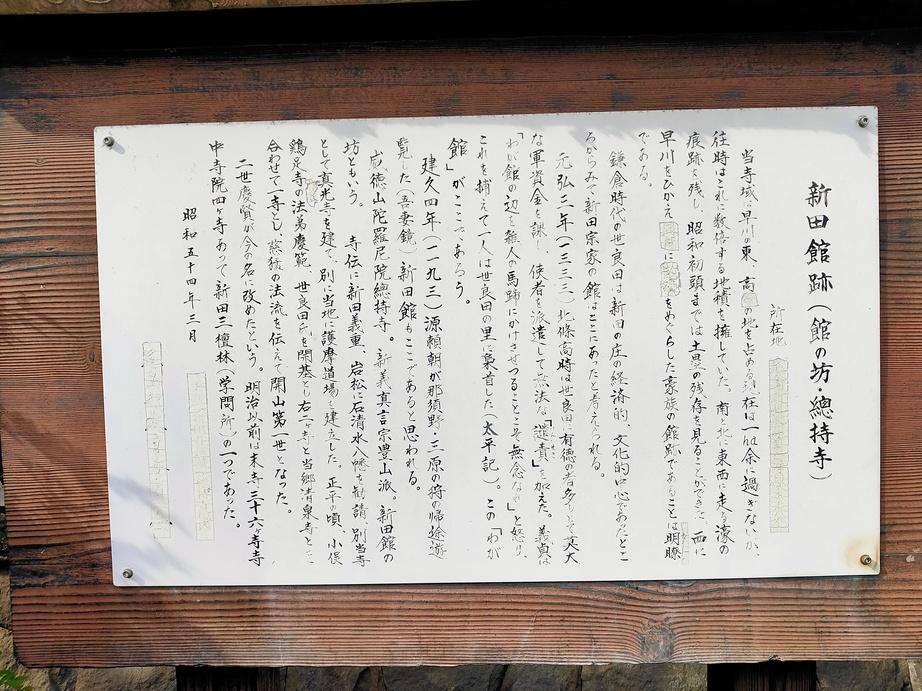 新田館跡(館の坊・總持寺)
所在地
当寺域は早川の東、高の地を占める現在は一ha余に過ぎないが、
往時はこれに数倍する地積を擁していた。南と北に東西に走る濠の
痕跡を残し、昭和初頭までは土塁の残存を見ることができ、西に
早川をひかえ に をめぐらした豪族の館跡であることは明瞭
である。
鎌倉時代の世良田は新田の庄の経済的、文化的中心であったとこ
ろからみて新田宗家の館はここにあたと考えられる。
元弘三年(一三三三)北條高時は世良田に有徳の者多しとて莫大
な軍資金を課し、使者を派遣して無法な「譴責」を加えた。義貞は
「わが館の辺を雑人の馬蹄にかけさせつることこそ無念なれ」と怒り、
これを捕えて一人は世良田の里に梟首した(太平記)。この「わが
館」がここであろう。
建久四年(一一九三)源頼朝が那須野・三原の狩の帰途遊
覧した(吾妻鏡)新田館もここであると思われる。
威徳山陀羅尼院總持寺。新義真言宗豊山派。新田館の
坊ともいう。 寺伝に新田義重、岩松に石清水八幡を勧請、別当寺
として真光寺を建て、別に当地に護摩道場を建立した。正平の頃、小俣
鶏足寺の法弟慶範、世良田氏を開基とし右二ヶ寺と当郷清泉寺とこ
合わせて一寺とし、慈猛の法流を伝えて開山第一世となった。
二世慶賢が今の名に改めたという。明治以前は末寺三十六ヶ寺寺
中寺院四ヶ寺あって新田三檀林(学問所)の一つであった。
昭和五十四年三月